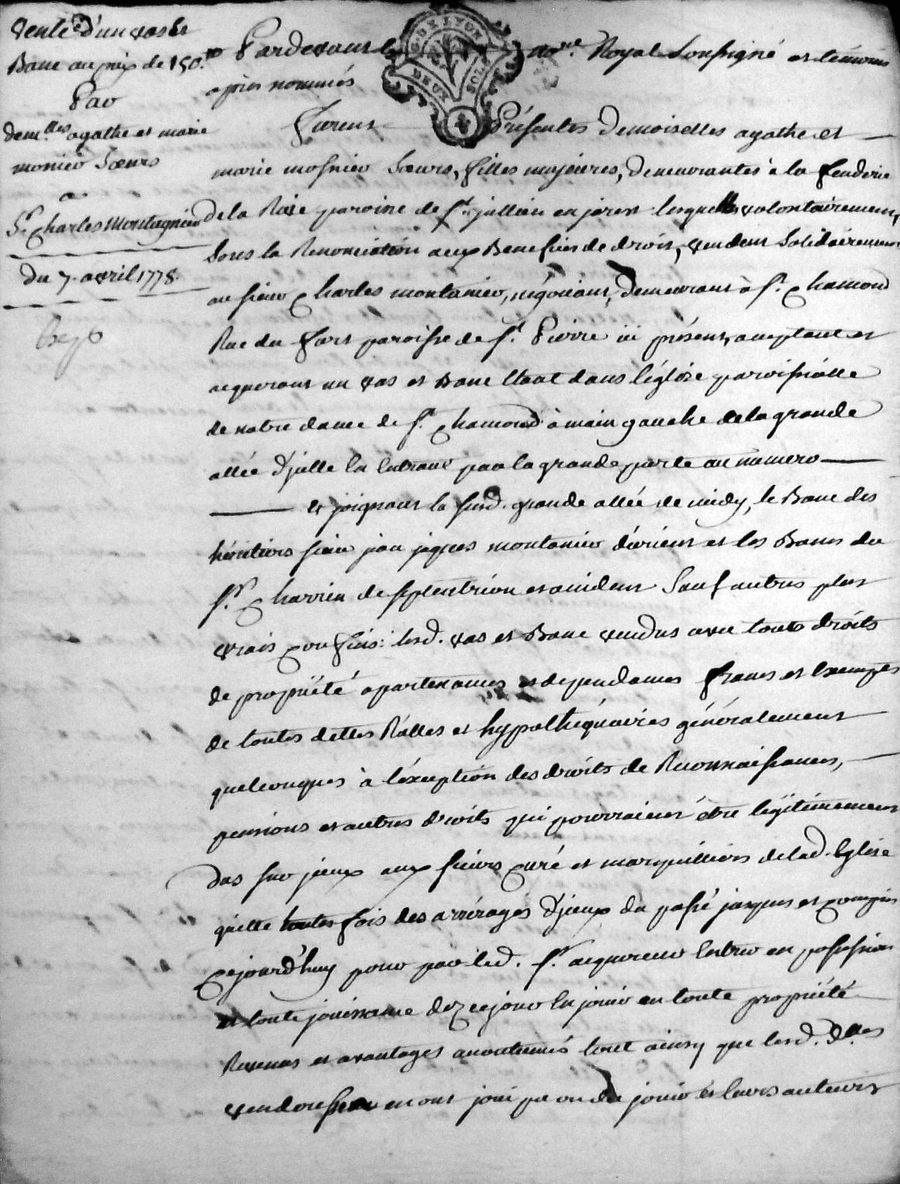 Vente d'un vas et
Banc au prix de 150.##
Par
dem.lles agathe et marie
monier Sœurs
a
S.r Charles Montagnier
du 7. avril 1778.
GN. DE LYON
DEUX SOLS
Pardevant le no.re Royal Soussigné et témoins
après nommés
Furent Présentes Demoiselles agathe et
marie mosnier Sœurs, filles majeures, demeurantes à la fenderie
de la Rive paroisse de S.t jullien en jarest lesquelles volontairement,
sous la Renonciation aux Benefices de droit, vendent Solidairement
au sieur Charles montanier, négociant, demeurant à S.t Chamond
Rue du fort paroisse de S.t Pierre ici présent, acceptant et
acquerant un vas et Banc étant dans l'église paroissialle
de notre dame de S.t Chamond à main gauche de la grande
allée d'jcelle en entrant par la grande porte au numero
et joignant la susd. grande allée de midy, le Banc des
héritiers sieur jean jaques montanier d'orient et les Bancs du
S.r Charrin de septentrion et occident Sauf autres plus
vrais confins: lesd. vas et Banc vendus avec touts droits
de propriété apartenances et dependances francs et Exempts
de toutes dettes Réelles et hypothéquaires généralement
quelconques à l'éxception des droits de Reconnaissances,
pensions et autres droits qui pourraient être légitimement
dus sur jceux aux sieurs curé et marguilliers de lad. Eglise
quitte toutes fois des arrérages d'jceux du passé jusques et compris
cejourd'huy pour par led. S.r acquereur Entrer en possession
et toute jouissance dez ce jour En jouir en toute propriété
Revenus et avantages accoutumés tout ainsy que lesd. D.lles
venderesses en ont joui pu ou dû jouir et leurs auteurs